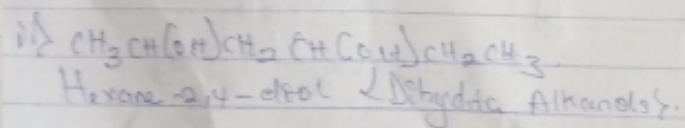 ii) CH₃CH(OH)CH₂CH(OH)CH₂CH₃.
Hexane-2,4-diol (Dihydric Alkanols).